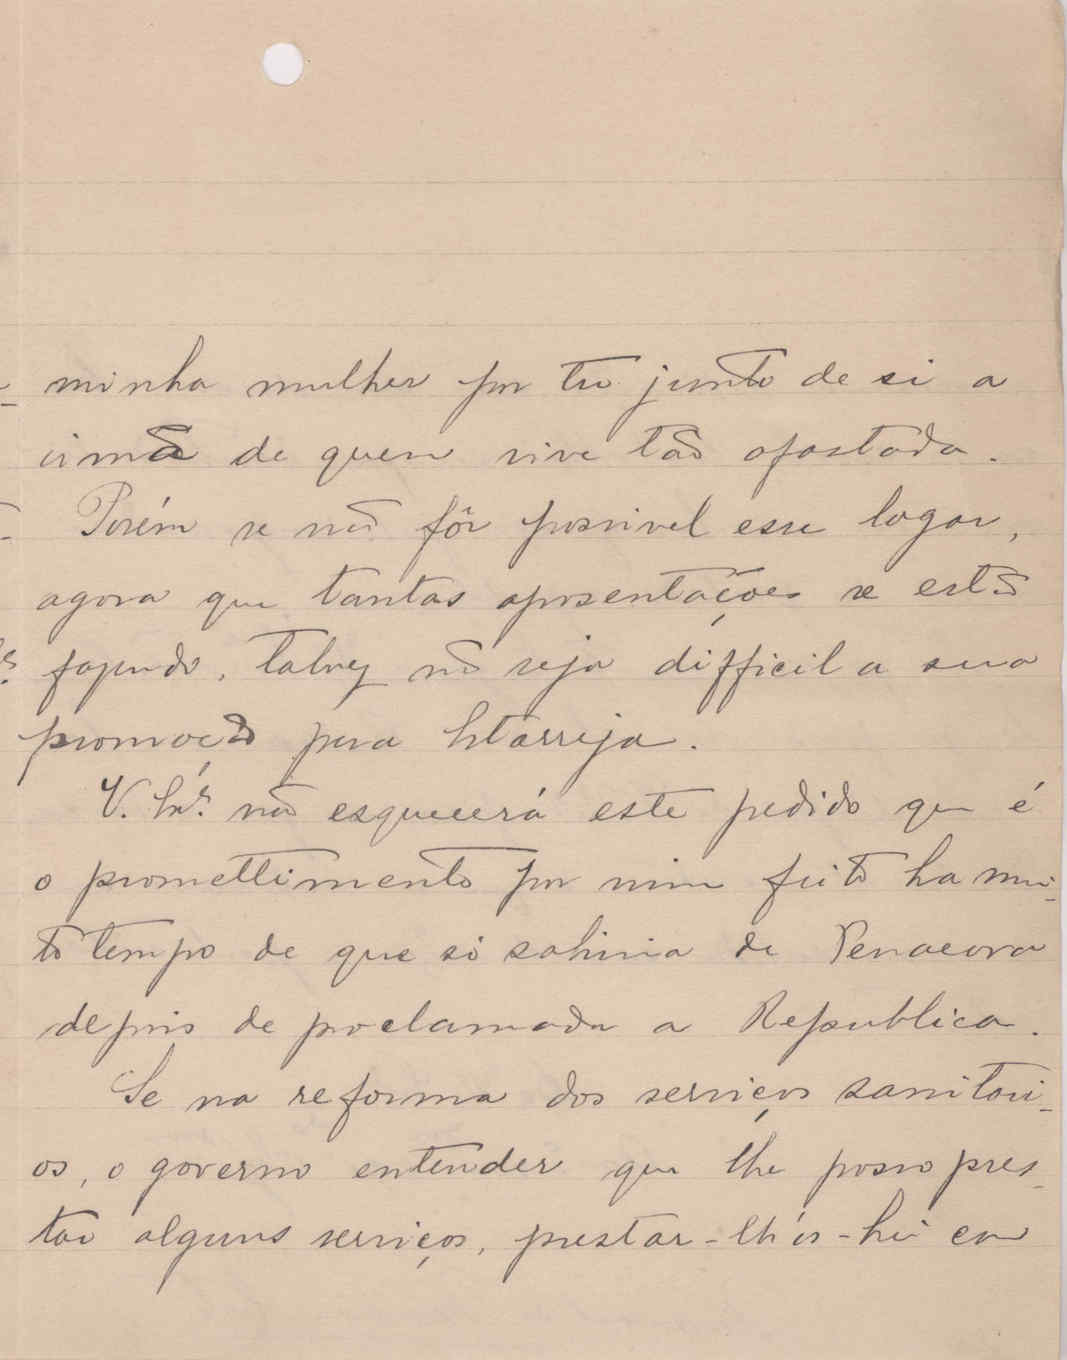 minha mulher por ter junto de si a
irmã de quem vive tão afastada.
Porém se não fôr possivel esse logar,
agora que tantas aposentações se estão
fazendo, talvez não seja difficil a sua
promoção para Estarreja.
V. Exª. não esquecerá este pedido que é
o promettimento por mim feito ha mui-
to tempo de que só sahiria de Penacova
depois de proclamada a Republica.
Se na reforma dos serviços sanitari-
os, o governo entender que lhe posso pres-
tar alguns serviços, prestar-lh'os-hei com